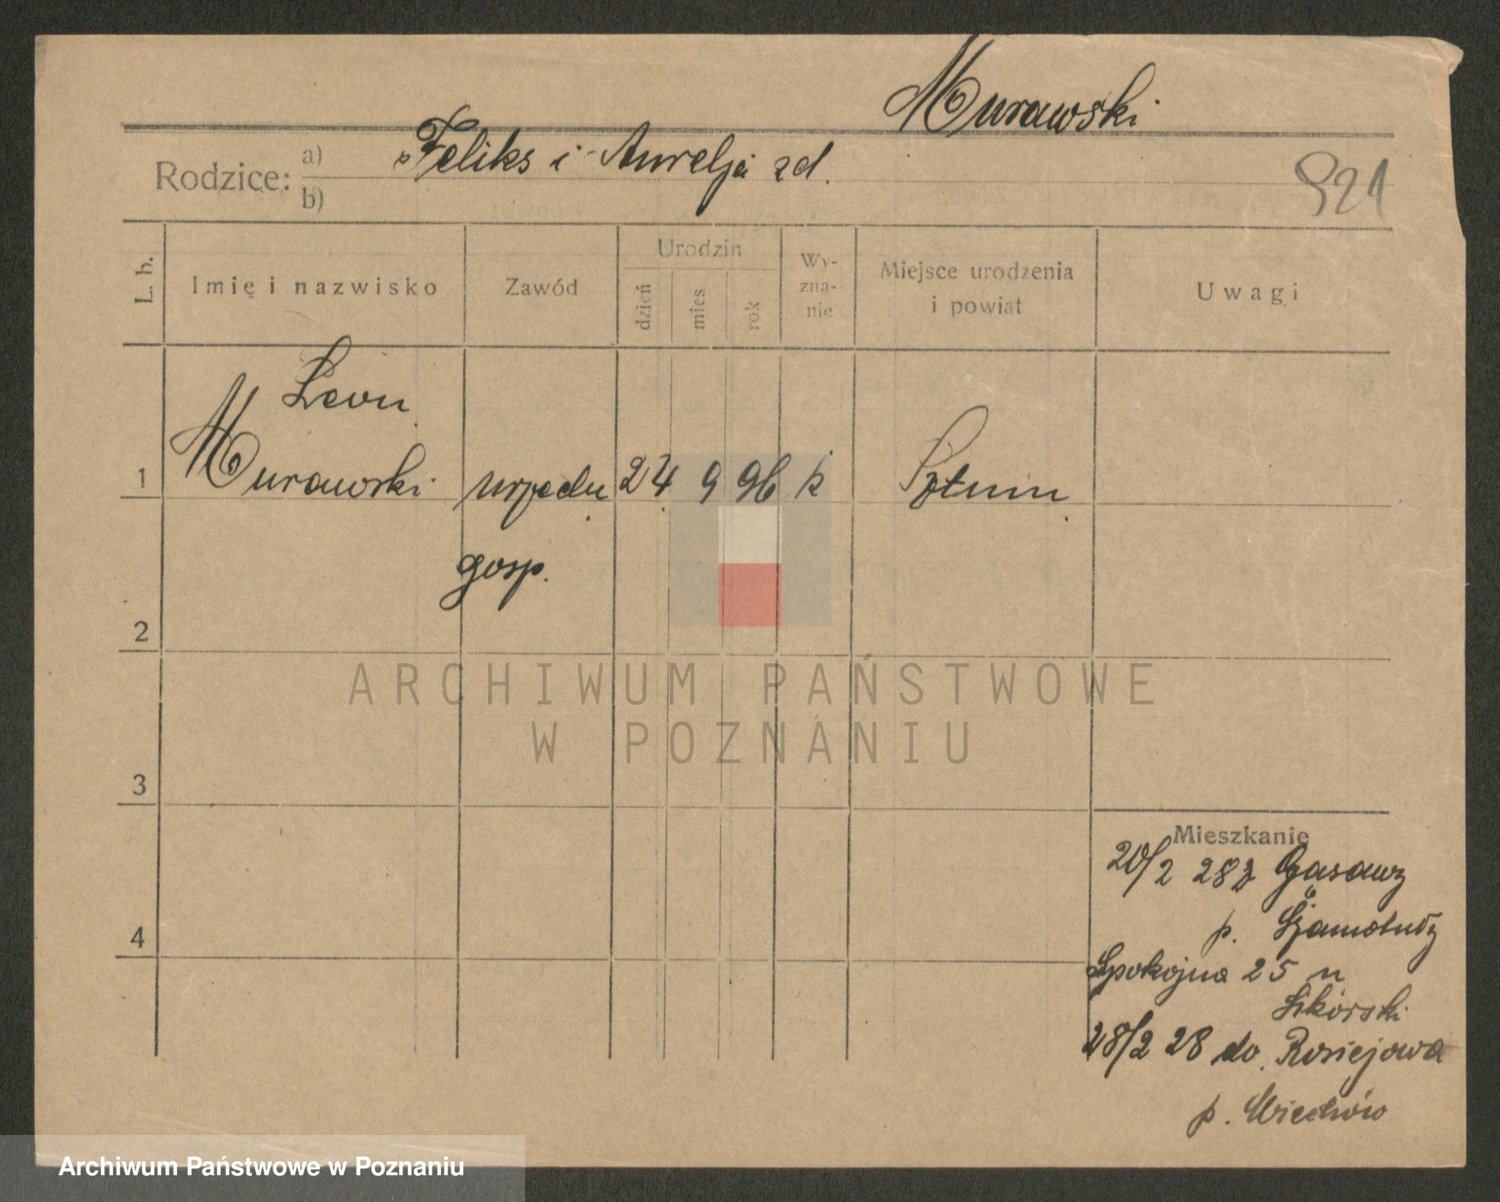 Murawski
Rodzice: a) Feliks i Aurelja zd.
b)
921
L. b.
Imię i nazwisko
Zawód
Urodzin
dzień
mies
rok
Wy-
zna-
nie
Miejsce urodzenia
i powiat
Uwagi
Leon
1 Murawski urzędn. 24. 9 96 k Sztum.
gosp.
2
ARCHIWUM PAŃSTWOWE
W POZNANIU
3
Mieszkanie
20/2 28 z Gąsawy
p. Szamotuły
4
Spokojna 25 u
Sikorski
28/2 28 do Rosiejowa
p. Miechów
Archiwum Państwowe w Poznaniu